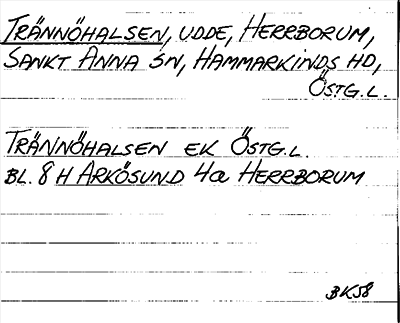 TRÄNNÖHALSEN, UDDE, HERRBORUM,
SANKT ANNA SN, HAMMARKINDS HD,
ÖSTG.L.
TRÄNNÖHALSEN EK ÖSTG.L.
BL. 8 H ARKÖSUND 4a HERRBORUM
BK58